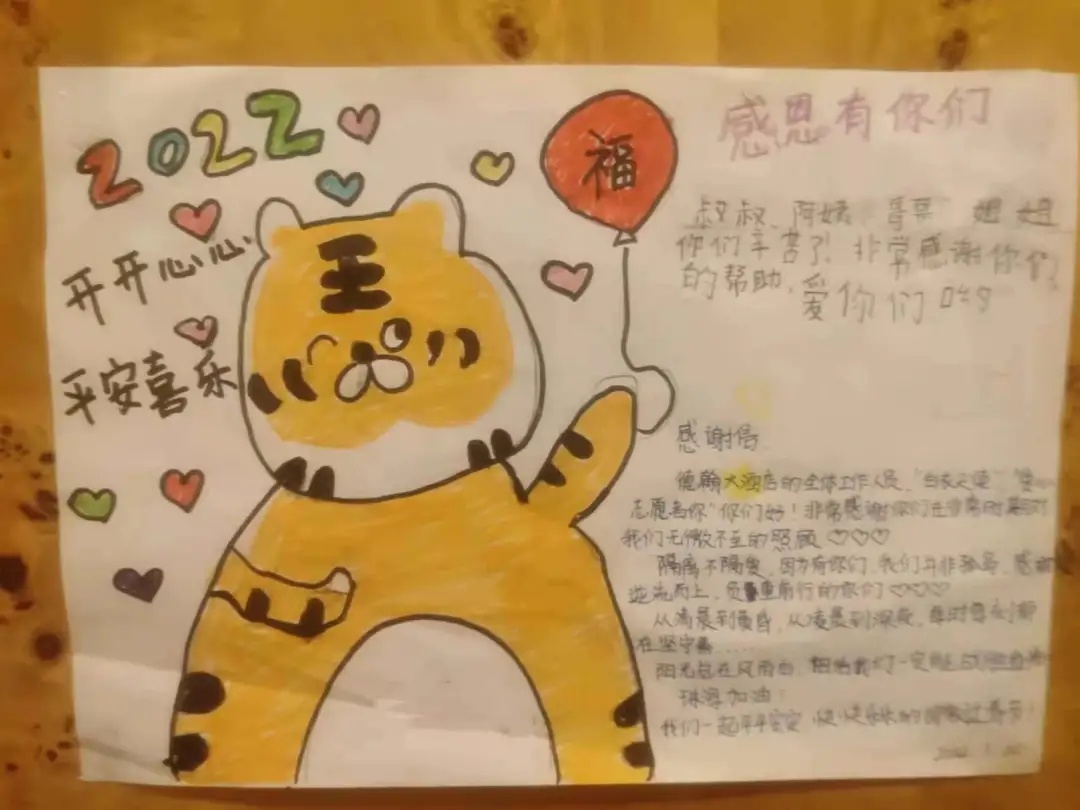 2022
福
王
开开心心
平安喜乐
感恩有你们
叔叔、阿姨、哥哥、姐姐
你们辛苦了！非常感谢你们
的帮助，爱你们
感谢信
德瀚大酒店的全体工作人员，"白衣天使"
志愿者你"你们好！非常感谢你们在非常时期对
我们无微不至的照顾♡♡♡
隔离不隔爱，因为有你们，我们并非孤岛，感
逆光而上，负重前行的你们♡♡♡
从清晨到黄昏，从凌晨到深夜，每时每刻都
在坚守着……
阳光总在风雨后，相信我们一定
珠海加油！
我们一起平平安安，快快乐乐的过春节！